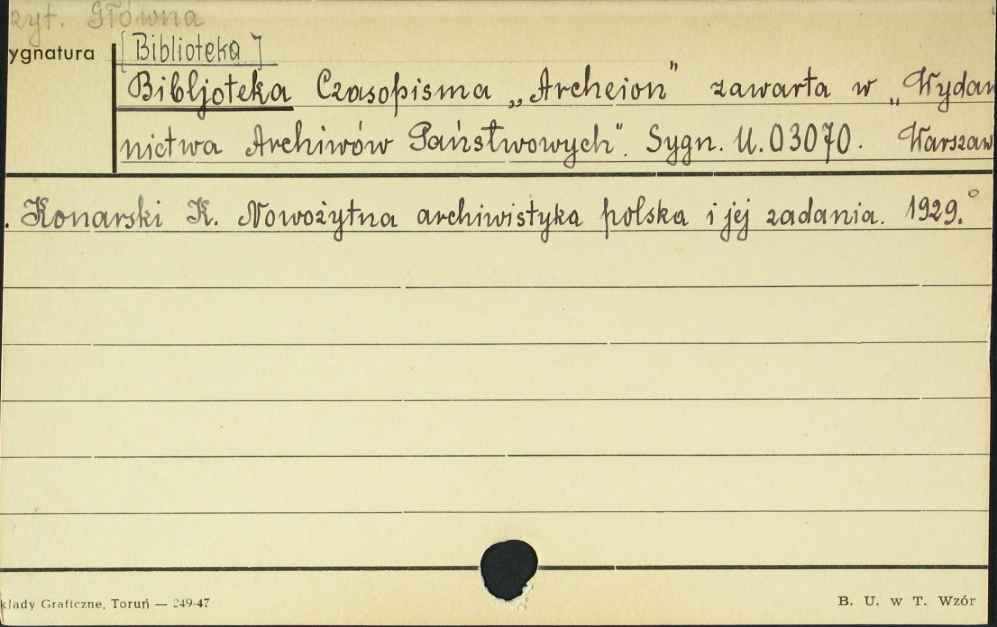 zyt. Główna
ygnatura [Biblioteka]
Bibljoteka Czasopisma „Archeion" zawarta w „Wydan
nictwa Archiwów Państwowych". Sygn. U. 03070. Warszaw
. Konarski K. Nowożytna archiwistyka polska i jej zadania. 1929.°
kłady Graficzne, Toruń — 249-47
B. U. w T. Wzór